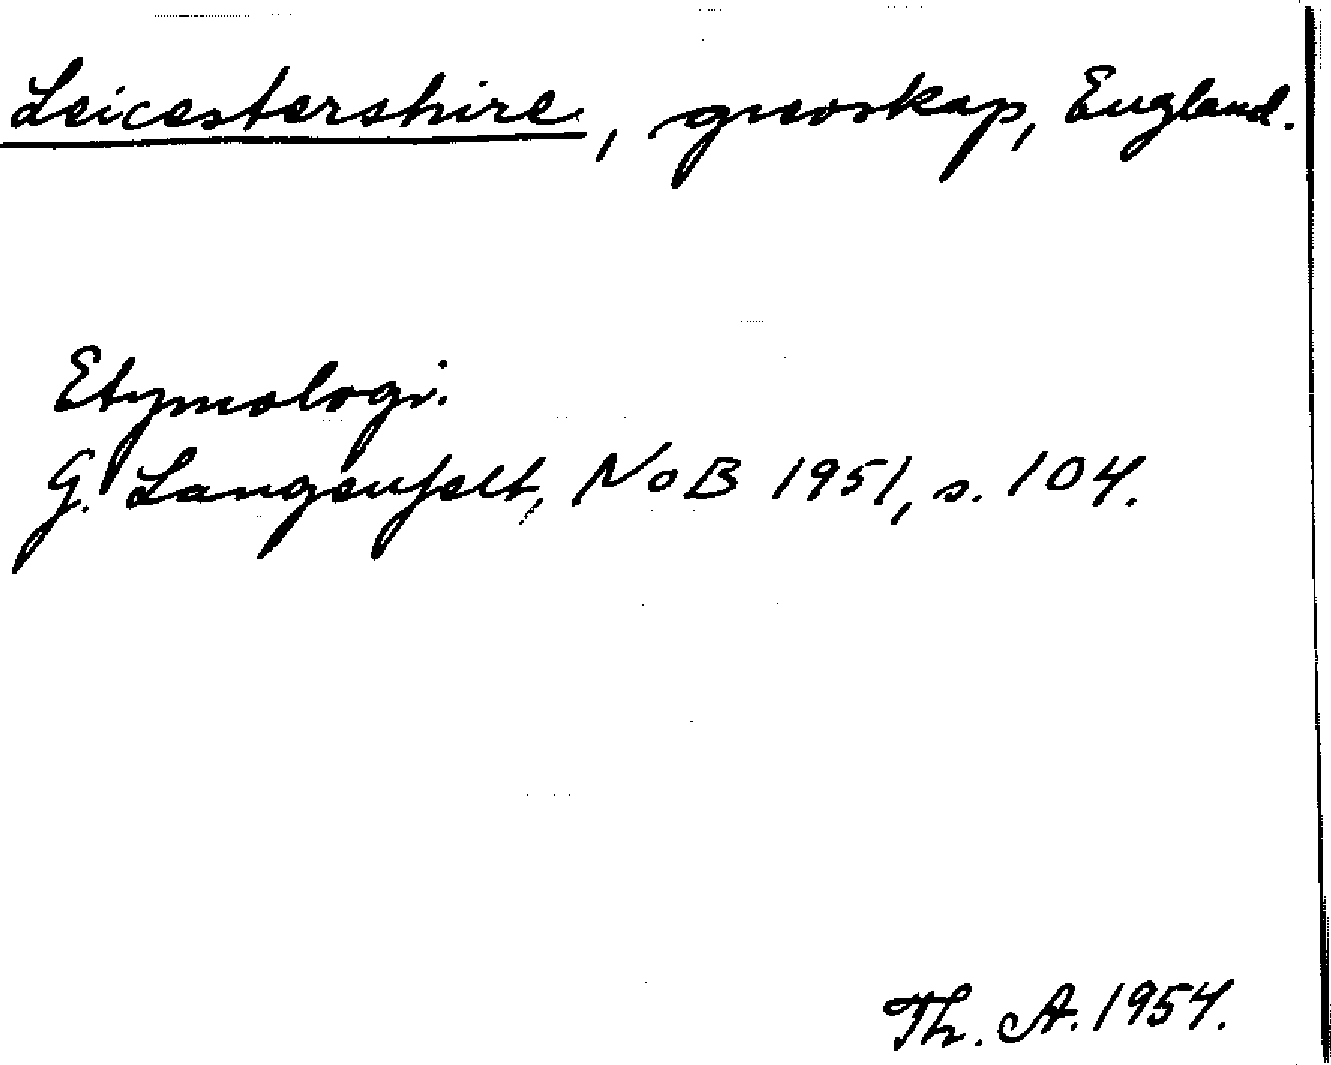 Leicestershire, grevskap, England.
Etymologi.
G. Langenfelt, NoB 1951, s. 104.
Th. A. 1954.